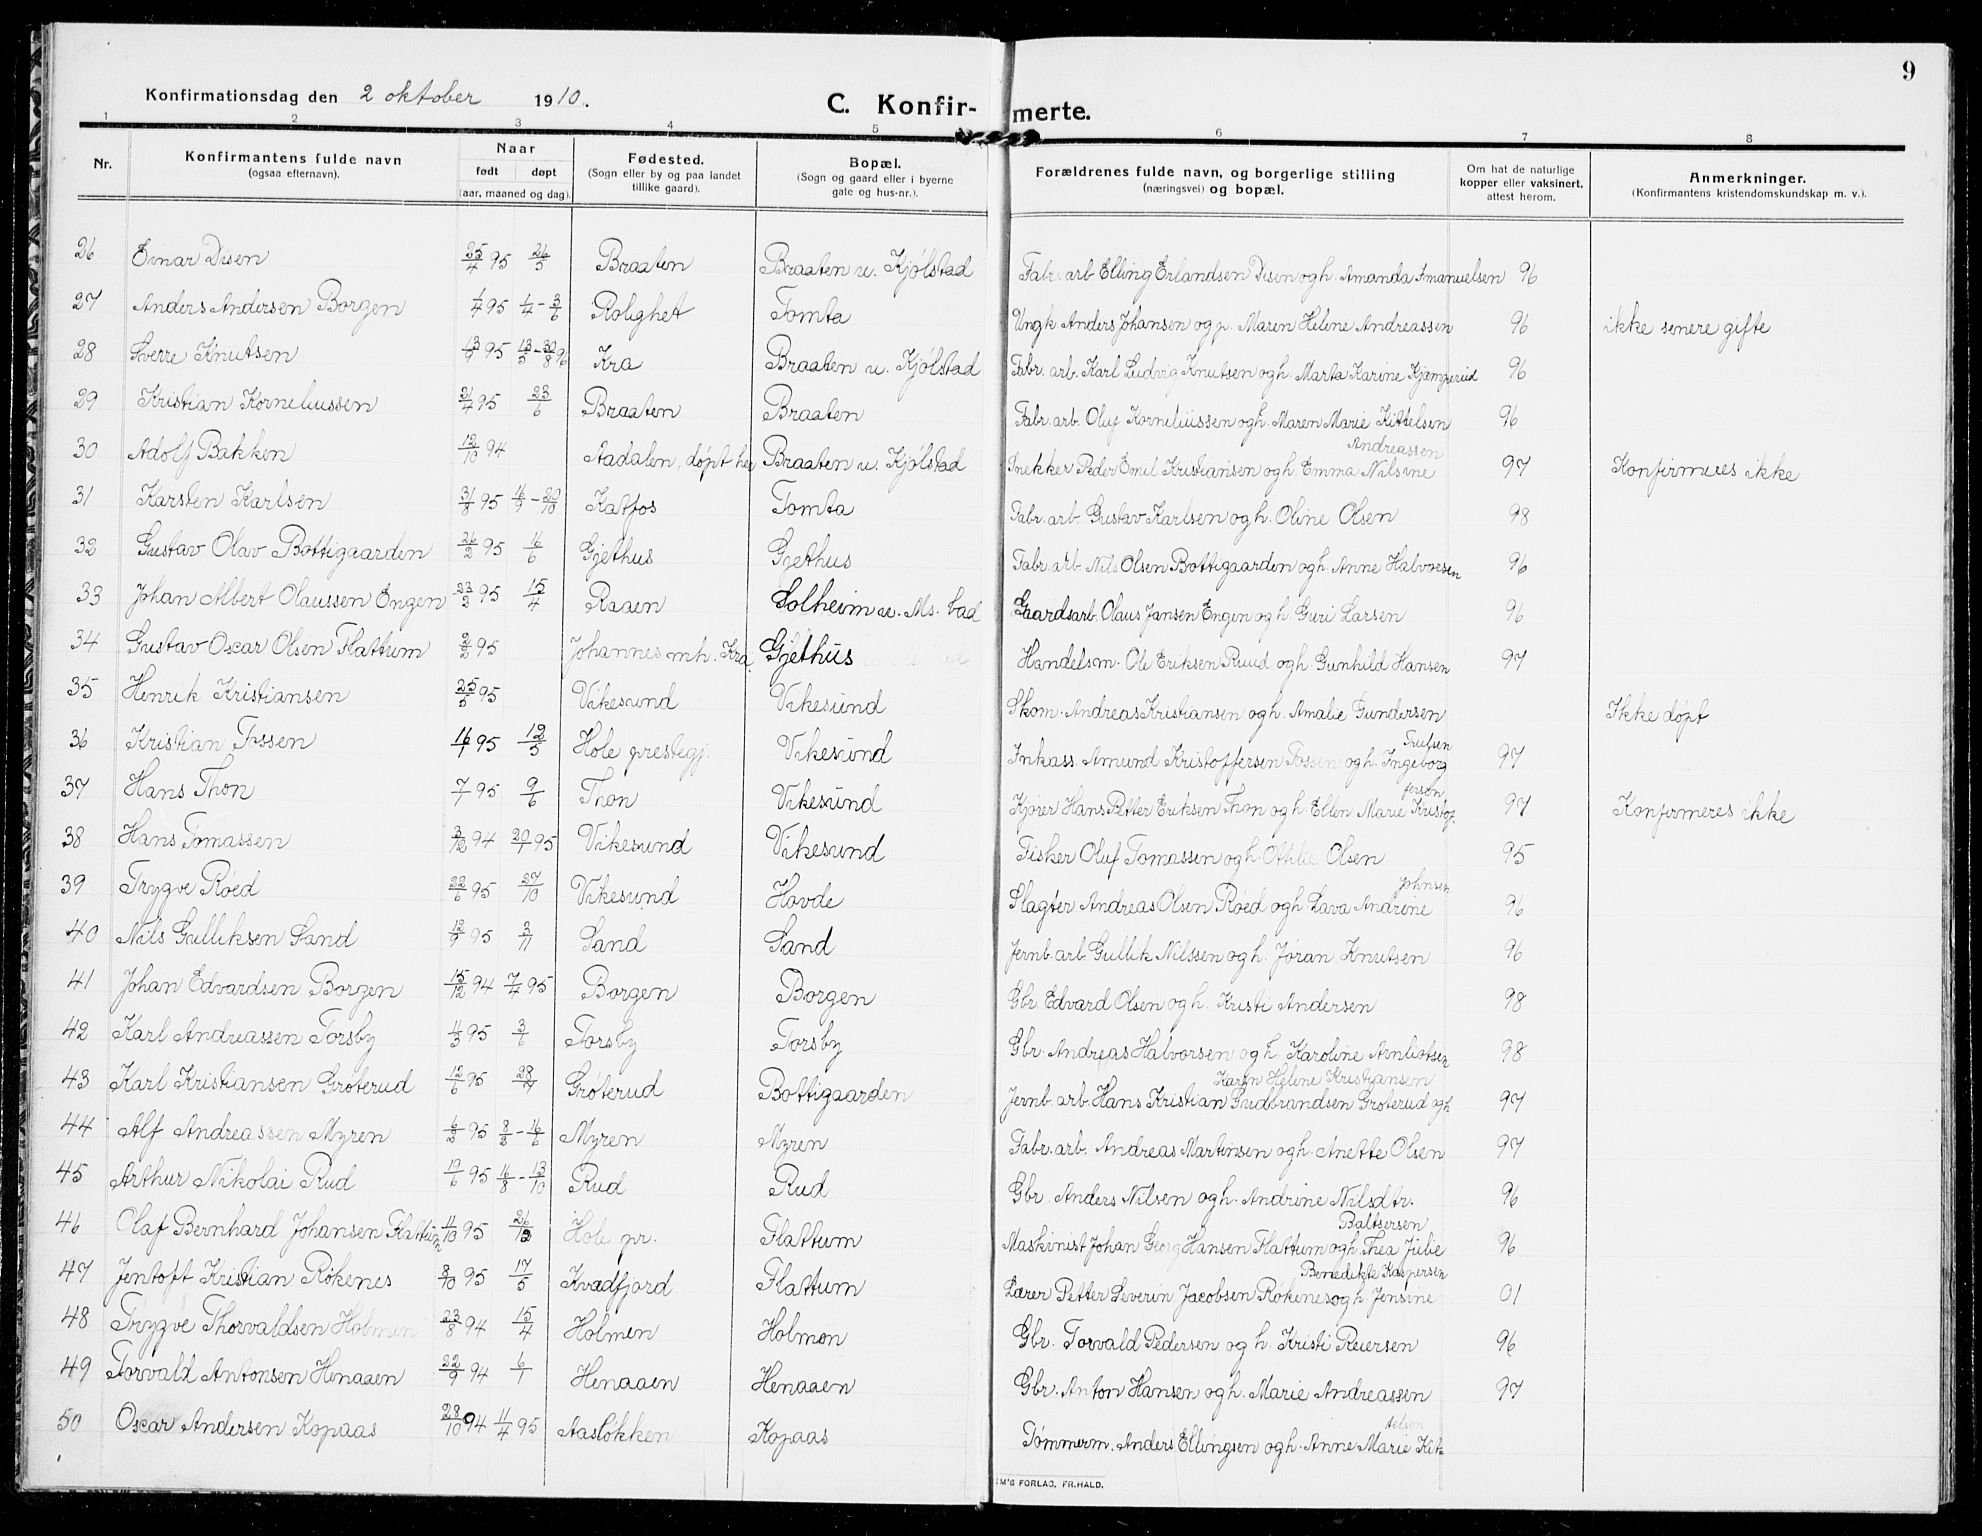 9
Konfirmationsdag den 2 oktober 1910.
C. Konfirmerte.
1 2 3 4 5 6 7 8
Nr. Konfirmantens fulde navn (ogsaa efternavn). Naar født døpt (aar, maaned og dag). Fødested. (Sogn eller by og paa landet tillike gaard). Bopæl. (Sogn og gaard eller i byerne gate og hus-nr.). Forældrenes fulde navn, og borgerlige stilling (næringsvei) og bopæl. Om hat de naturlige kopper eller vaksinert, attest herom. Anmerkninger. (Konfirmantens kristendomskundskap m. v.).
26 Einar Disen 25/4 95 26/5 Braaten Braaten u. Kjølstad Fabr. arb Elling Erlandsen Disen og h. Amanda Imanuelsen 96
27 Anders Andersen Borgen 1/4 95 1/4 - 3/6 Rolighet Tomta Ungk Anders Johansen og p. Maren Helene Andreassen 96 ikke senere gifte
28 Sverre Knutsen 95 Kra Braaten u. Kjølstad Fabr. arb. Karl Ludvig Knutsen og h. Marta Karine Kjæmperud 96
29 Kristian Korneliussen 21/4 95 23/6 Braaten Braaten Fabr. arb. Oluf Korneliussen og h. Maren Marie Kittelsen 96
30 Adolf Bakken 12/10 94 Aadalen, døpt her Braaten u. Kjølstad Snekker Peder Emil Kristiansen og h Emma Nilsine Andreassen 97 Konfirmeres ikke
31 Karsten Karlsen 31/8 95 16/9 - 20/10 Katfos Tomta Fabr. arb. Gustav Karlsen og h. Oline Olsen 98
32 Gustav Olav Bottigaarden 26/2 95 16/6 Gjethus Gjethus Fabr. arb. Nils Olsen Bottigaarden og h. Anne Halvorsen 96
33 Johan Albert Olaussen Engen 23/2 95 15/4 Raaen Solheim u. Ms. bad Gaardsarb. Olaus Jansen Engen og h. Guri Larsen 96
34 Gustav Oscar Olsen Flattum 2/2 95 Johannes mh. Kra Gjethus Handelsm. Ole Eriksen Ruud og h. Gunhild Hansen 97
35 Henrik Kristiansen 25/5 95 Vikesund Vikesund Skom. Andreas Kristiansen og h. Amalie Gundersen Ikke døpt
36 Kristian Fossen 16/1 95 12/5 Hole prestegj. Vikesund Inkass. Amund Kristoffersen Fossen og h. Ingeborg Trulsen 97
37 Hans Thon 7/1 95 9/6 Thon Vikesund Kjører Hans Petter Eriksen Thon og h Ellen Marie Kristoffersen 97 Konfirmeres ikke
38 Hans Tomassen 3/12 94 20/1 95 Vikesund Vikesund Fisker Oluf Tomassen og h. Otilie Olsen 95
39 Trygve Røed 22/6 95 27/10 Vikesund Hovde Slagter Andreas Olsen Røed og h. Lava Andrine Johnsen 96
40 Nils Gulliksen Sand 12/9 95 3/11 Sand Sand Jernb. arb. Gullik Nilssen og h. Jøran Knutsen 96
41 Johan Edvardsen Borgen 15/12 94 7/4 95 Borgen Borgen Gbr Edvard Olsen og h. Kristi Andersen 98
42 Karl Andreassen Torsby 11/3 95 3/6 Torsby Torsby Gbr. Andreas Halvorsen og h. Karoline Arnliotsen 98
43 Karl Kristiansen Grøterud 12/6 95 28/7 Grøterud Bottigaarden Jernb. arb. Hans Kristian Gudbrandsen Grøterud og h Karen Helene Kristiansen 97
44 Alf Andreassen Myren 6/2 95 8/2 - 16/6 Myren Myren Fabr. arb. Andreas Martinsen og h. Anette Olsen 97
45 Arthur Nikolai Rud 19/6 95 16/8 - 13/10 Rud Rud Gbr. Anders Nilsen og h. Andrine Nilsdtr. 96
46 Olaf Bernhard Johansen Flattum 11/10 95 26/12 Hole pr. Flattum Maskinist Johan Georg Hansen Flattum og h. Thea Julie Baltsersen 96
47 Jentoft Kristian Røkenes 8/10 95 17/5 Kvædfjord Flattum Lærer Petter Severin Jacobsen Røkenes og h. Jensine Benedikte Kaspersen 01
48 Trygve Thorvaldsen Holmen 23/8 94 15/4 Holmen Holmen Gbr. Torvald Pedersen og h. Kristi Reiersen 96
49 Torvald Antonsen Henaaen 22/9 94 6/1 Henaaen Henaaen Gbr. Anton Hansen og h. Marie Andreassen 97
50 Oscar Andersen Kopaas 28/10 94 11/4 95 Aasløkken Kopaas Tømmerm. Anders Ellingsen og h. Anne Marie Kittelsen
M'S FORLAG, FR.HALD.